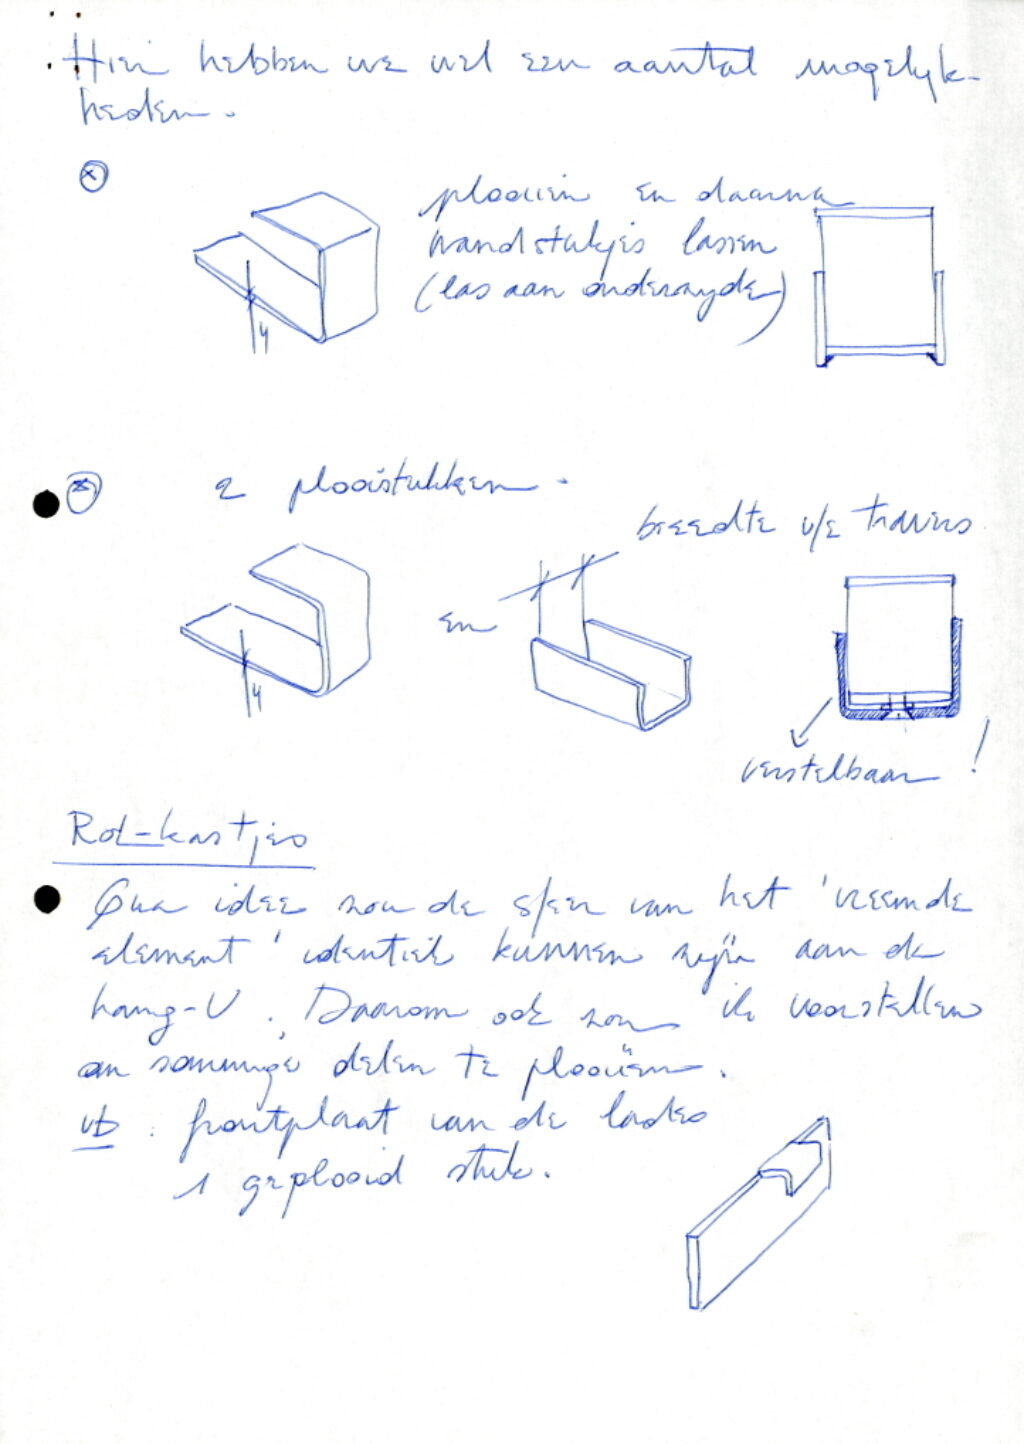 Hier hebben we wel een aantal mogelijk-
heden.
plooien en daarna
wandstukjes lassen
(las aan onderzijde)
4
2 plooistukken.
breedte v/e travers
en
4
verstelbaar !
Rol-kastjes
Qua idee zou de sfeer van het 'vreemde
element' identiek kunnen zijn aan de
hang-U. Daarom ook zou ik voorstellen
om sommige delen te plooien.
vb : frontplaat van de lades
1 geplooid stuk.